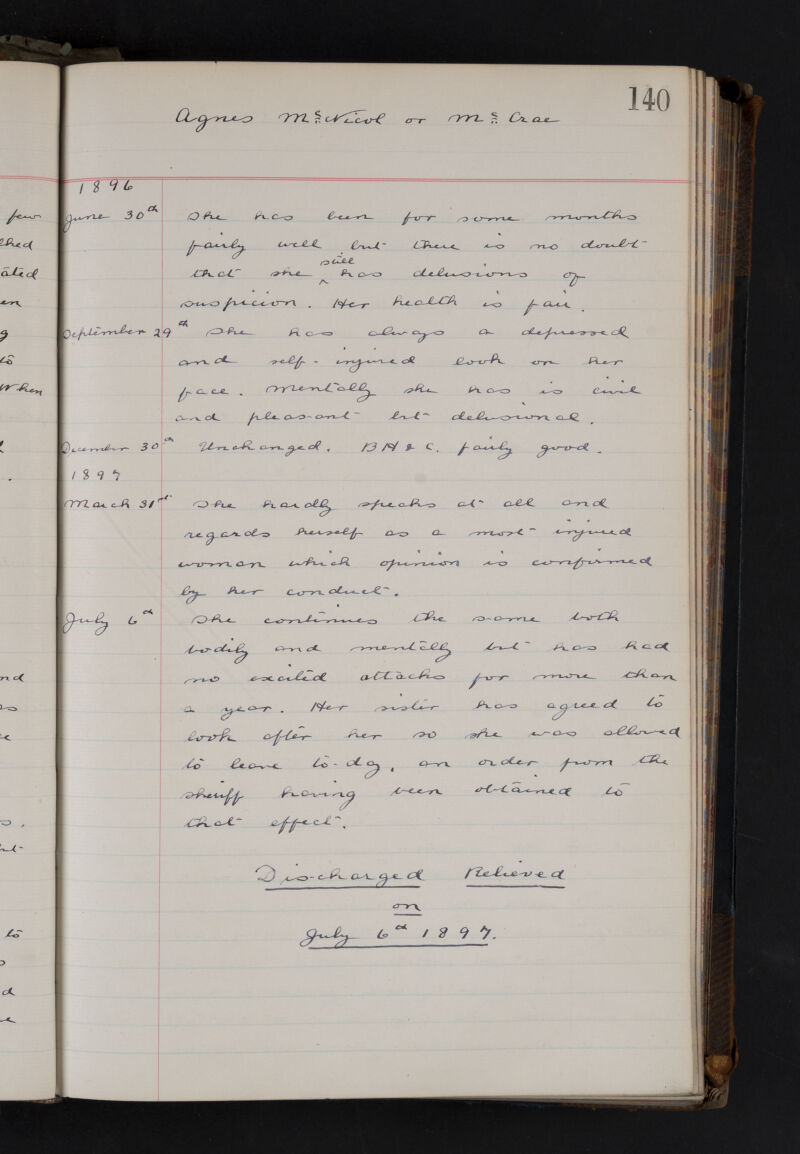 140
Agnes Mc. Nicol or Mc. Crae
1896
June 30th She has been for some months
fairly well but there is no doubt
that she still has delusions of
suspicion. Her health is fair.
September 29th She has always a depressed
and self-injured look on her
face. Mentally she has is civil
and pleasant but delusional.
December 30th Unchanged. B H & C. fairly good.
1897
March 31st She hardly speaks at all and
regards herself as a most injured
woman which opinion is confirmed
by her conduct.
July 6th She continues the same both
bodily and mentally but has had
no excited attacks for more than
a year. Her sister has agreed to
look after her so she was allowed
to leave to-day, an order from the
sheriff having been obtained to
that effect.
Discharged Relieved
on
July 6th 1897.
few
ated
en
g
to
When
nd
to
d